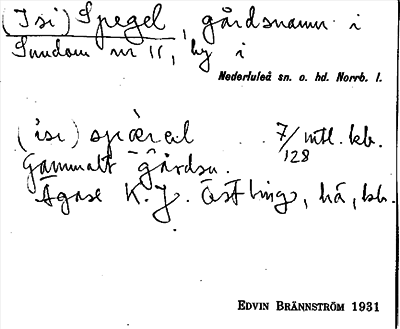 (I si) Spegel, gårdsnamn i
Sundom nr 11, by i
Nederluleå sn. o. hd. Norrb. l.
(isi) spæ̀ral 7/128 mtl. kb.
Gammalt gårdsn.
Ägare K. J. Östling, hä, bb.
EDVIN BRÄNNSTRÖM 1931